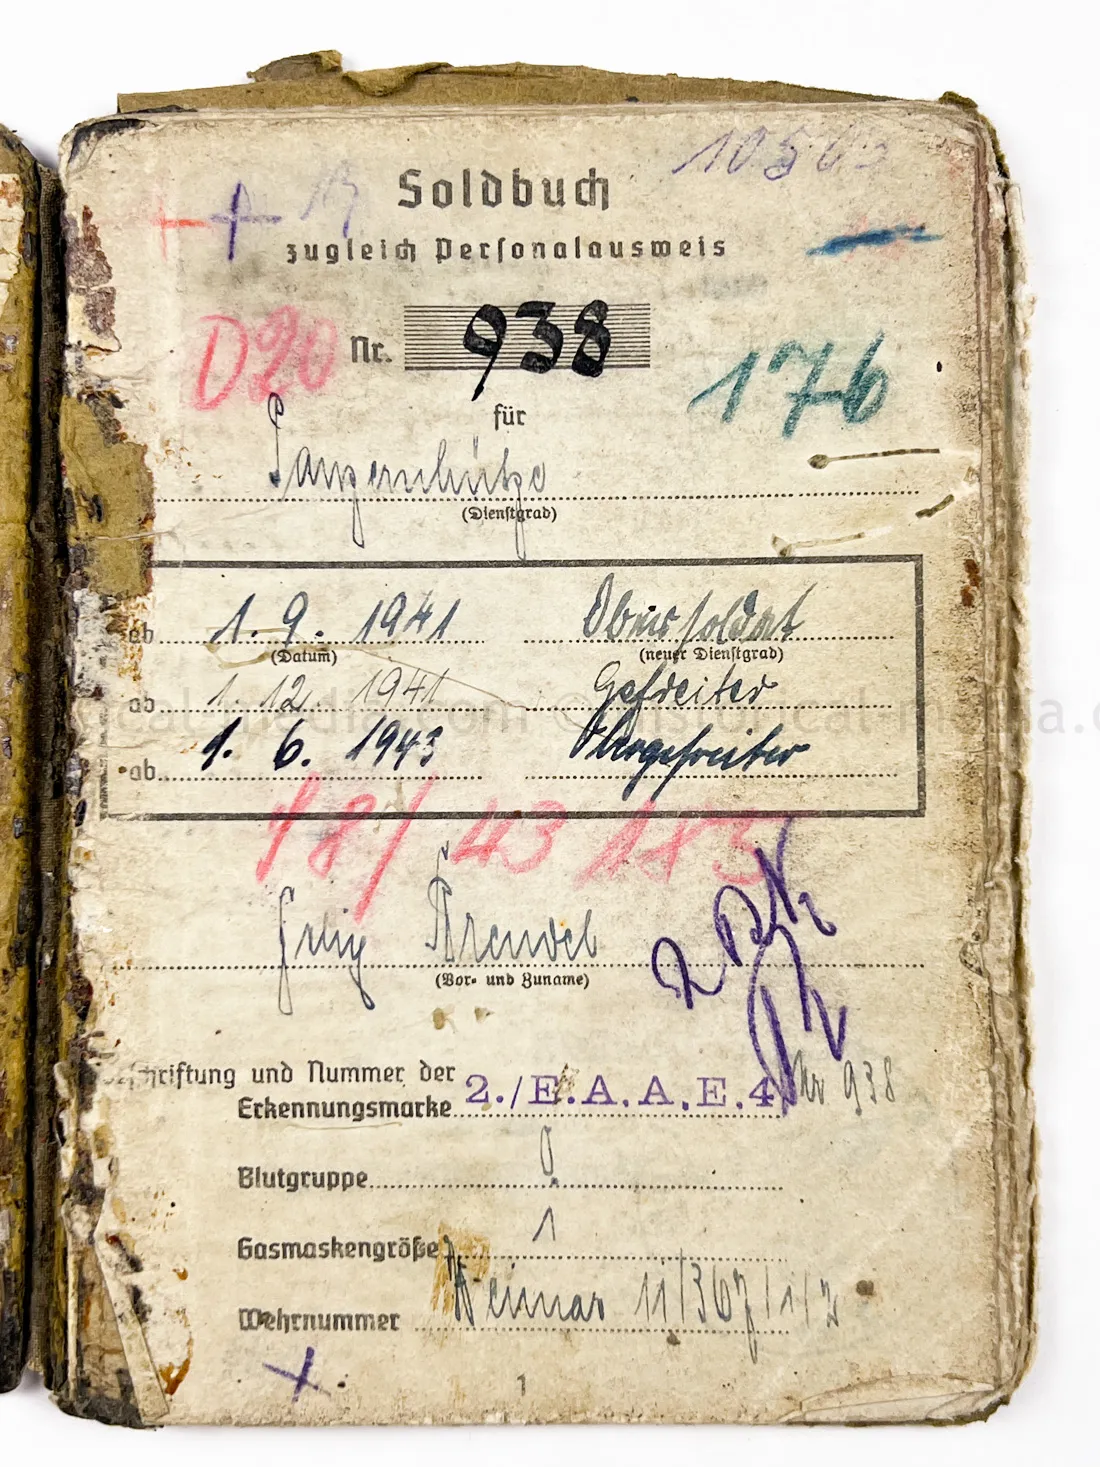 10583
Soldbuch
zugleich Personalausweis
D20 Nr. 938 176
für
Panzerschütze
(Dienstgrad)
ab 1. 9. 1941 Obersoldat
(Datum) (neuer Dienstgrad)
ab 1. 12. 1941 Gefreiter
ab 1. 6. 1943 Obergefreiter
18/43
Brendel
(Vor- und Zuname)
schriftung und Nummer der
Erkennungsmarke 2./E.A.A.E.4 Nr 938
Blutgruppe 0
Gasmaskengröße 1
Wehrnummer Weimar 11/367/1/2
1